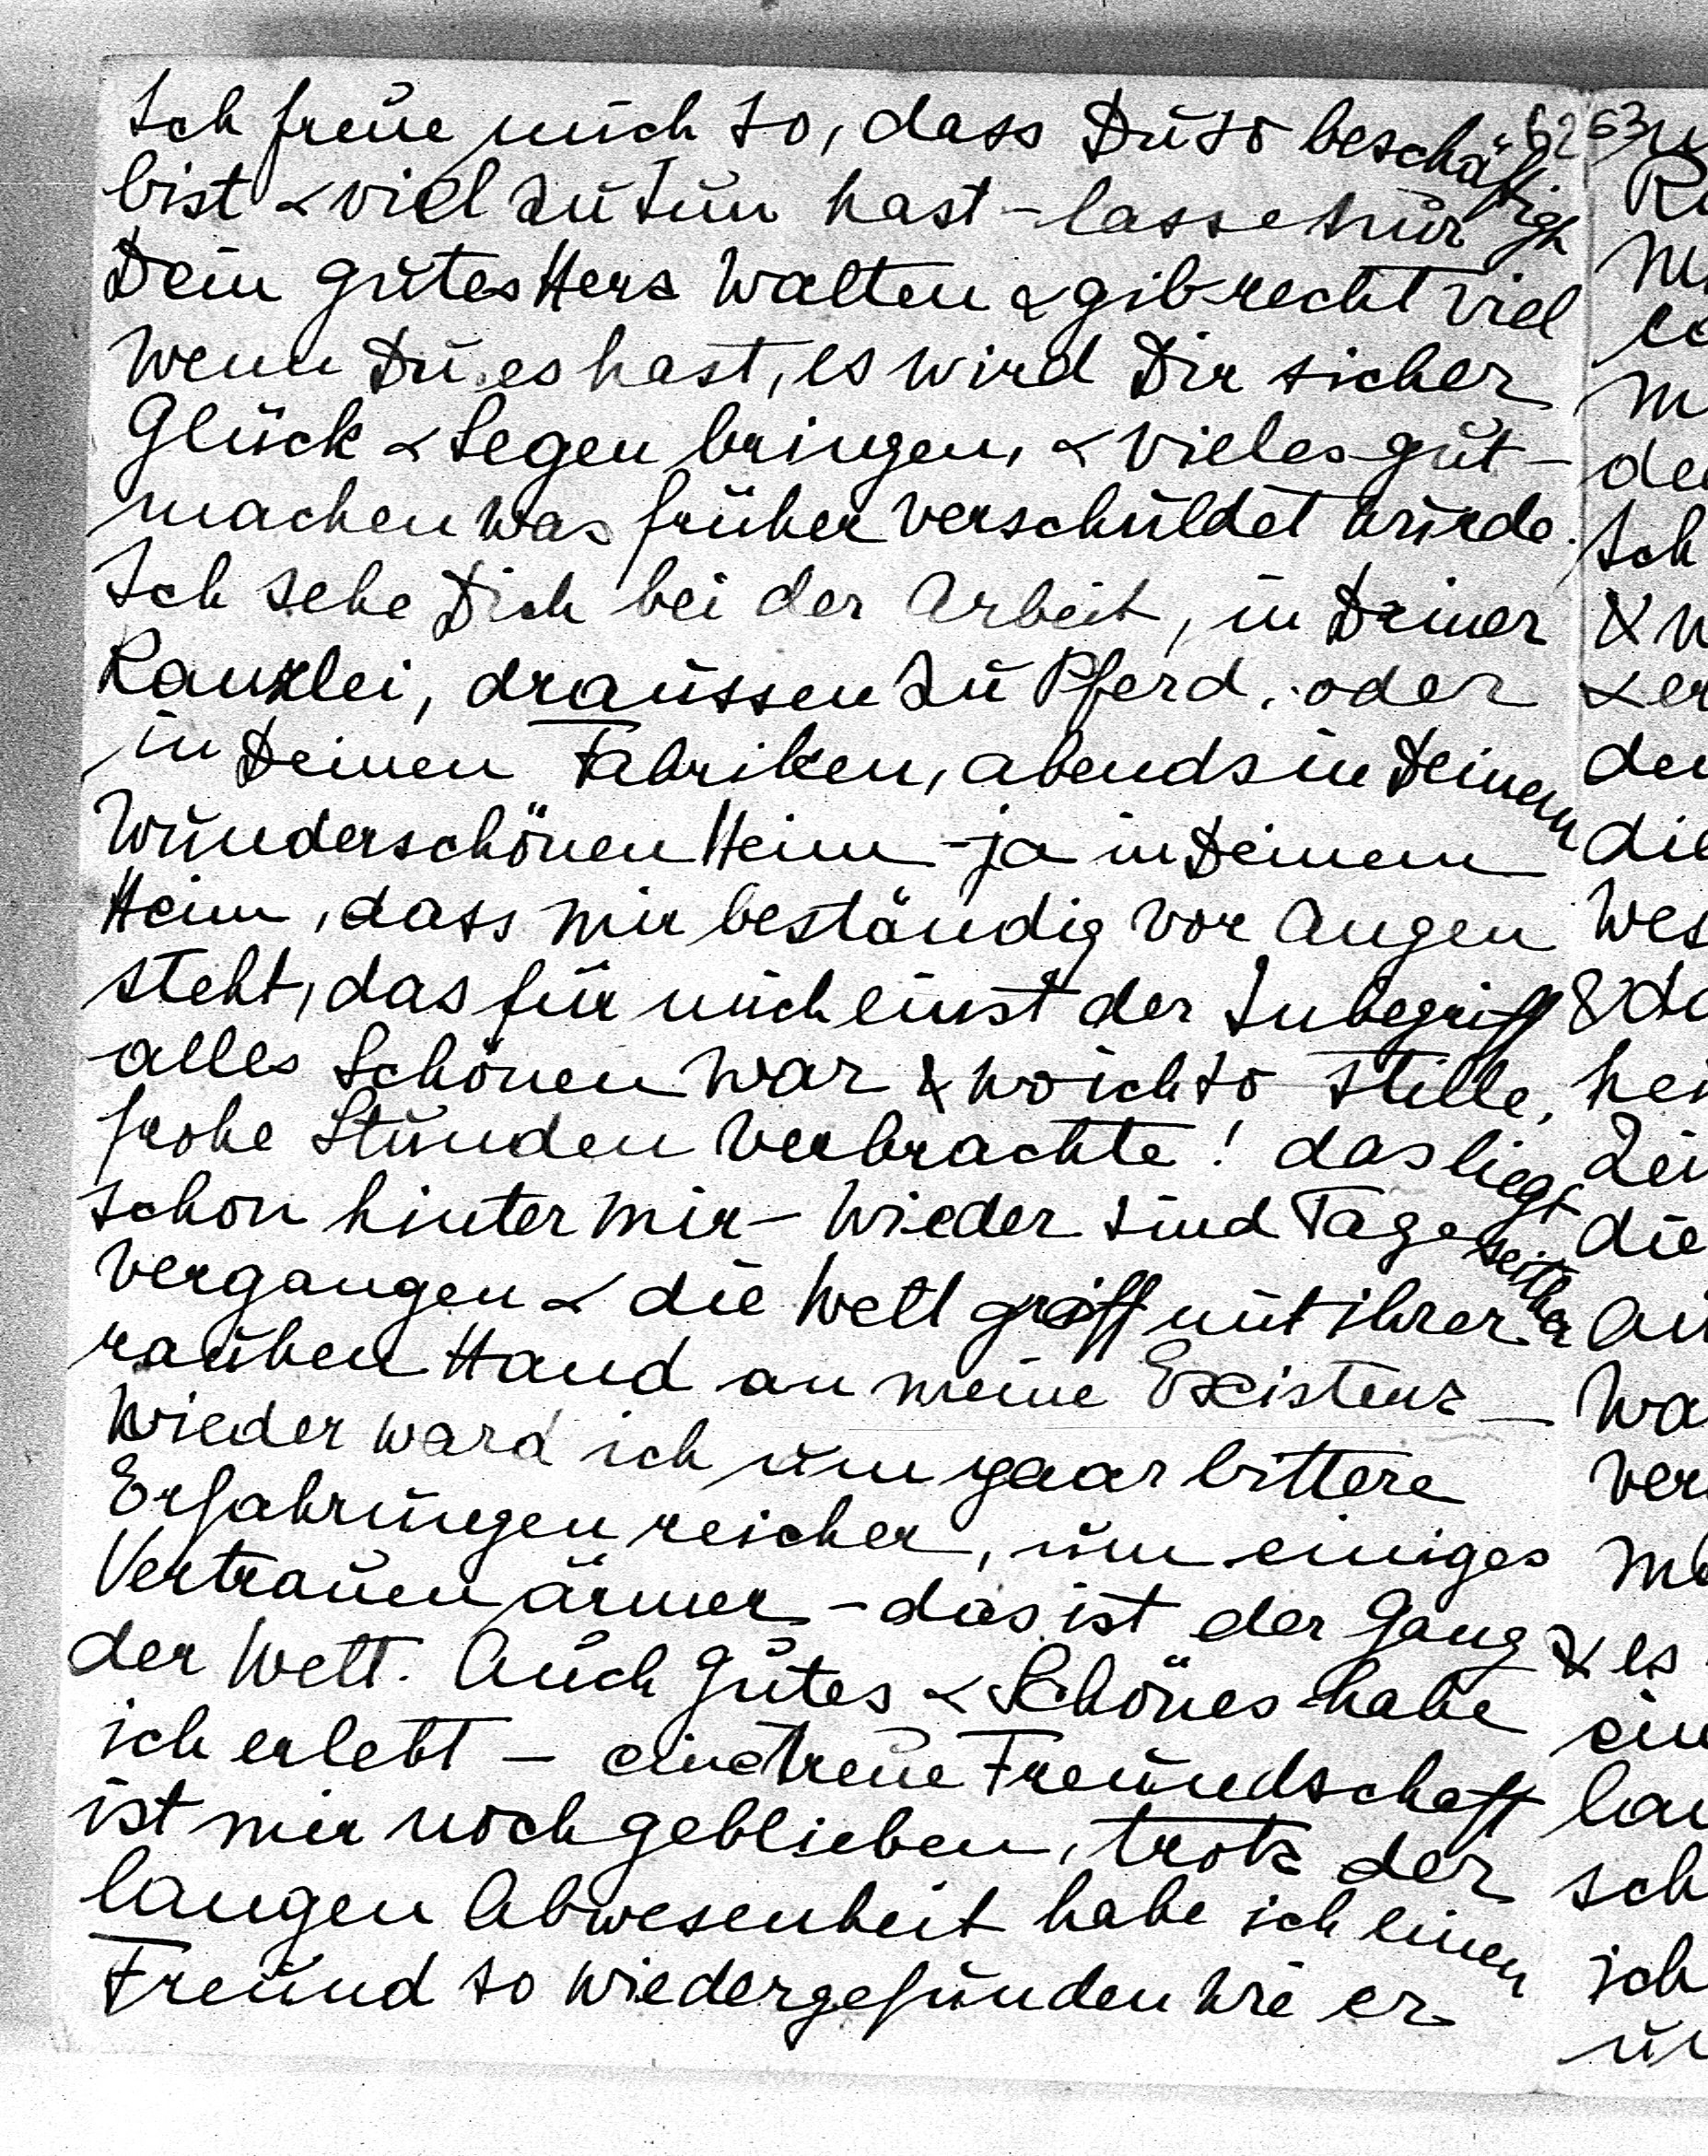 62
Ich freue mich so, dass Du so beschäftigt
bist & viel zu tun hast – lasse nur
Dein gutes Herz walten & gib recht viel
wenn Du es hast, es wird Dir sicher
Glück & Segen bringen, & vieles gut-
machen was früher verschuldet wurde.
Ich sehe Dich bei der Arbeit, in Deiner
Kanzlei, draussen zu Pferd, oder
in Deinen Fabriken, abends in Deinem
wunderschönen Heim – ja in Deinem
Heim, dass mir beständig vor Augen
steht, das für mich einst der Inbegriff
alles Schönen war & wo ich so stille,
frohe Stunden verbrachte! das liegt
schon hinter mir – wieder sind Tage seither
vergangen & die Welt griff mit ihrer
rauhen Hand an meine Existenz –
wieder ward ich um gaar bittere
Erfahrungen reicher, um einiges
Vertrauen ärmer – das ist der Gang
der Welt. Auch Gutes & Schönes habe
ich erlebt – eine treue Freundschaft
ist mir noch geblieben, trotz der
langen Abwesenheit habe ich einen
Freund so wiedergefunden wie er
63